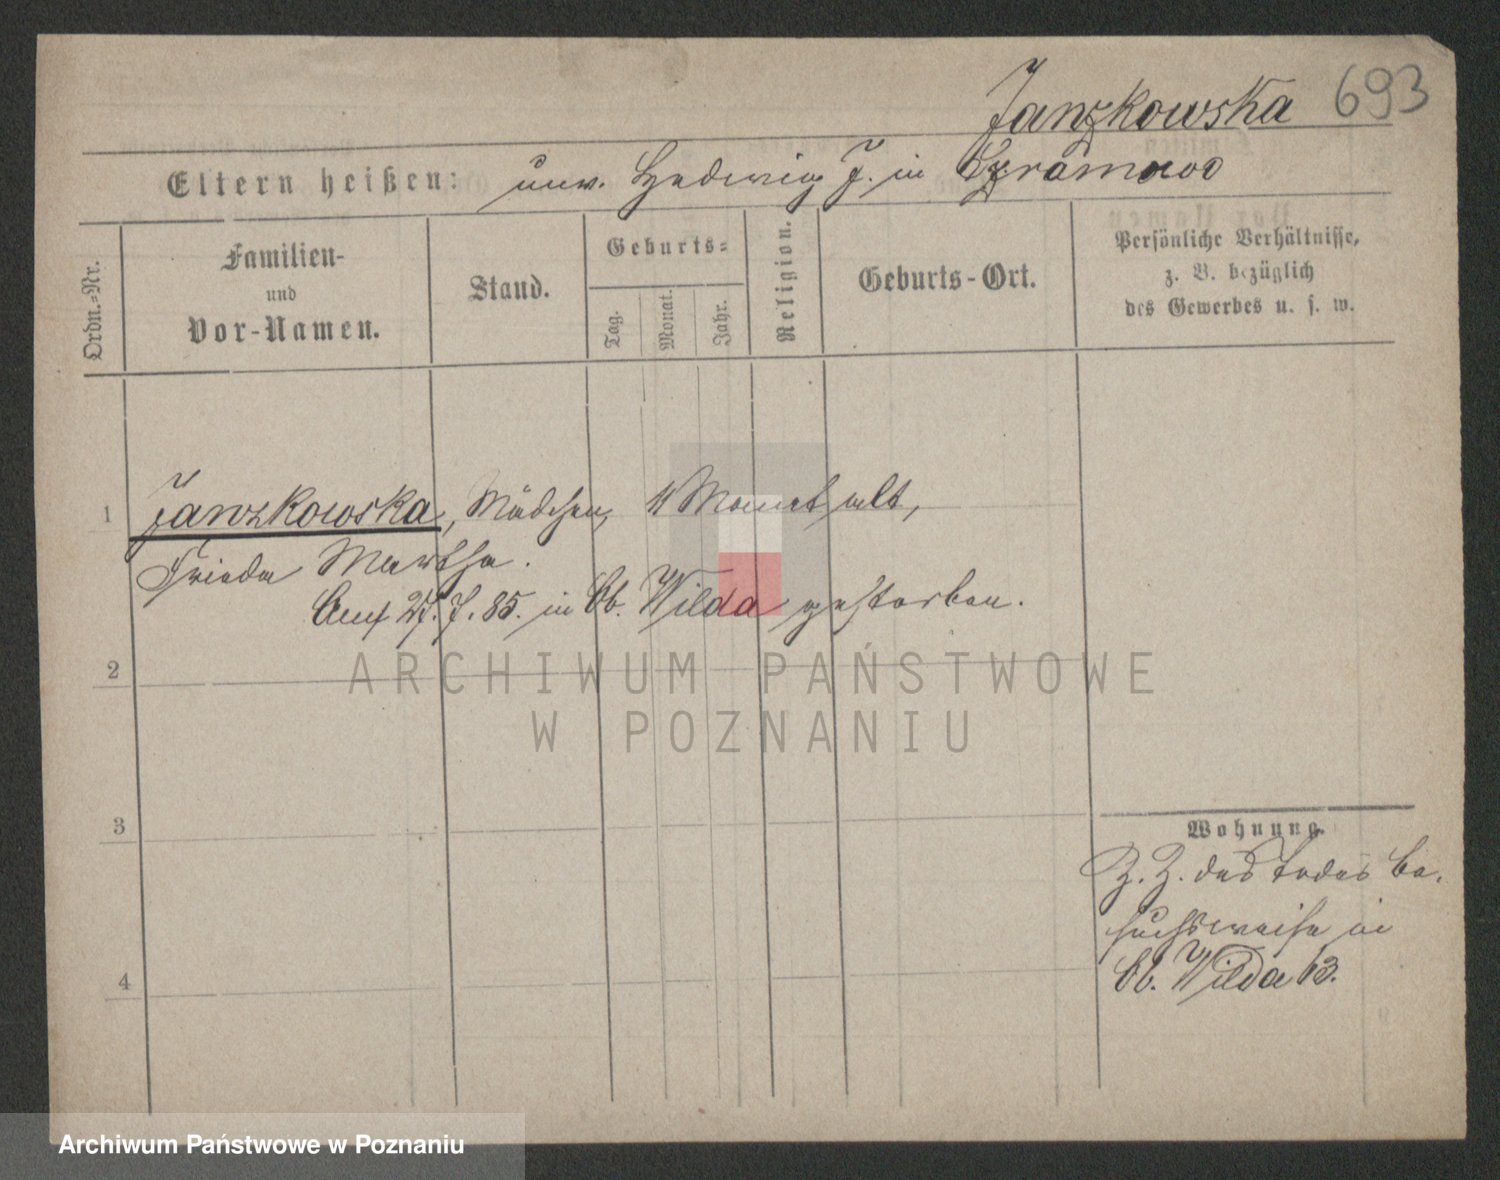 Janzkowska 693
Eltern heißen: unv. Hedwig J. in
Ordn.-Nr.
Familien-
und
Vor-Namen.
Stand.
Geburts-
Tag.
Monat.
Jahr.
Religion.
Geburts-Ort.
Persönliche Verhältnisse,
z. B. bezüglich
des Gewerbes u. s. w.
1 Janzkowska, Mädchen, Monat alt,
Frieda Martha.
Am 27. 7. 85. in Ob. Wilda gestorben.
2
3
4
Wohnung.
Z. Z. des Todes be-
suchsweise in
Ob. Wilda 63.
ARCHIWUM PAŃSTWOWE
W POZNANIU
Archiwum Państwowe w Poznaniu